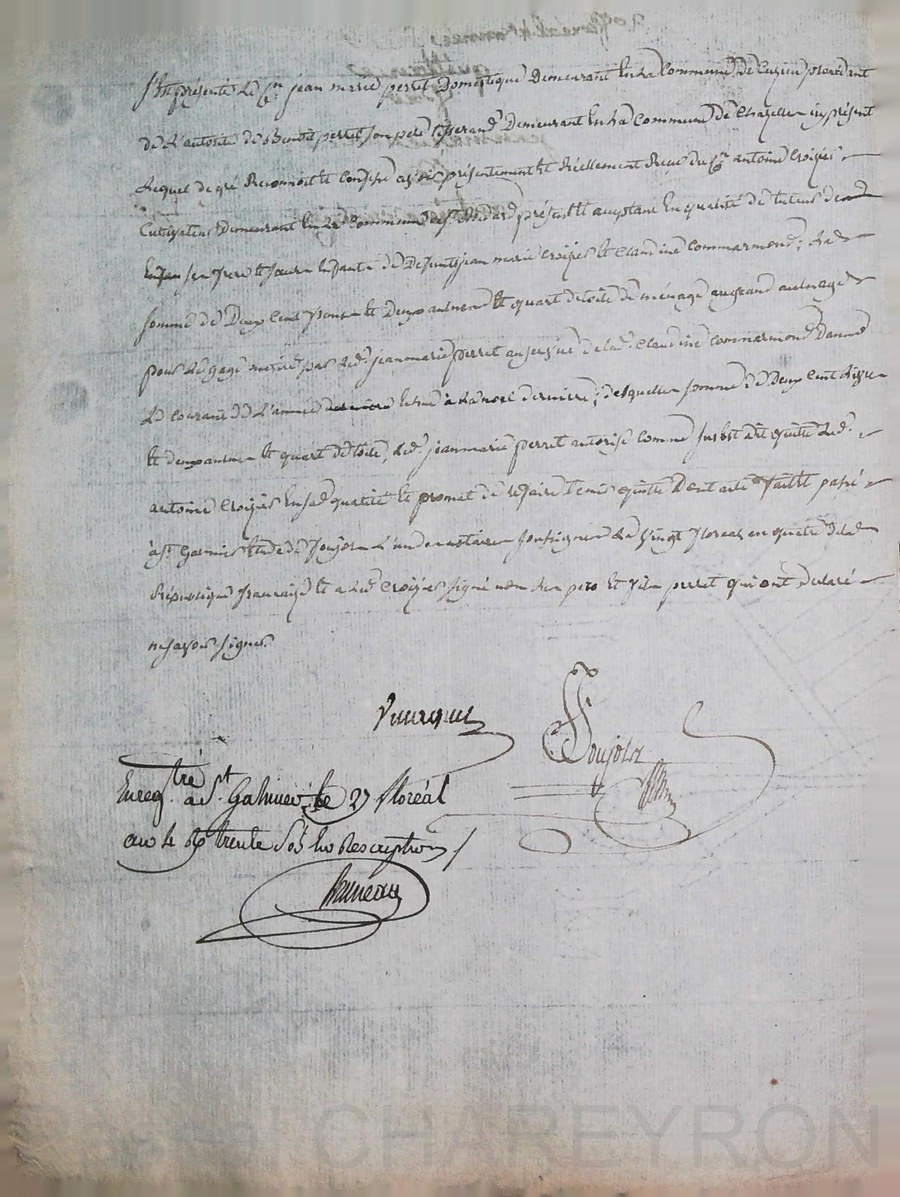 S'est présenté le c.en jean marie perret Domestique Demeurant En la Commune De Cuzieu procedant
de L'autorité de Benoit perret son pere tisserand Demeurant En la Commune De Chazelle icy présent
Lequel de gré Reconnoit et Confesse avoir présentement et Réellement Receu du c.en antoine Croizier
Cultivateur Demeurant En la Commune de s.t Medard, présent et acceptant En qualité de tuteur de
ses frere et soeur Enfants de Defunts jean marie Croizier et Claudine Commarmond; La
somme de Deux Cent francs et Deux aulnes et quart de toile de ménage au grand aulnage
pour Les gages mérités par Led. jean marie perret au service de lad. Claudine Commarmond Dans
Le Courant de L'année Echue à La noel derniere; desquelles sommes de Deux Cent livres
et deux aulnes et quart de toile, Led. jean marie perret autorisé Comme Susdit est quitte Led.
antoine Croizier En sad. qualité et promet de le faire tenir quitte Dont acte fait et passé
à s.t Galmier Etude de Soujol L'un des notaires soussignés Le vingt floreal an quatre de la
République francaise et a Led. Croizier signé non Les pere et fils perret qui ont déclaré
ne savoir signer.
Soujol
Enreg.tré a S.t Galmier le 27 floréal
an 4 Rs trente sols